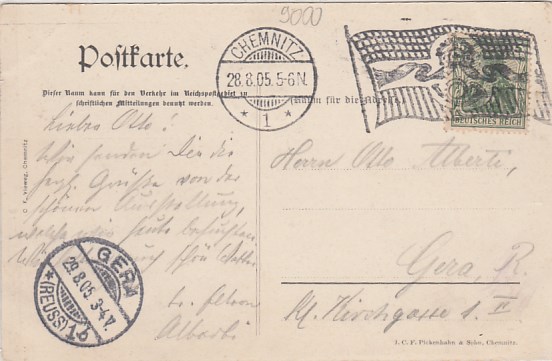 9000
Postkarte.
CHEMNITZ
28.8.05.5-6N.
* 1 *
DEUTSCHES REICH
Dieser Raum kann für den Verkehr im Reichspostgebiet zu
schriftlichen Mitteilungen benutzt werden.
(Raum für die Adresse.)
Liebes Otto!
Wir senden Dir die
herzl. Grüße von der
schönen Ausstellung,
welche wir heute besuchten.
schön
Albarti
Herrn Otto Alberti,
Gera, R.
Kl. Kirchgasse 1. II
GERA
29.8.05. 3-4V.
*(REUSS) 1b
C. F. Vieweg, Chemnitz
J. C. F. Pickenhahn & Sohn, Chemnitz.